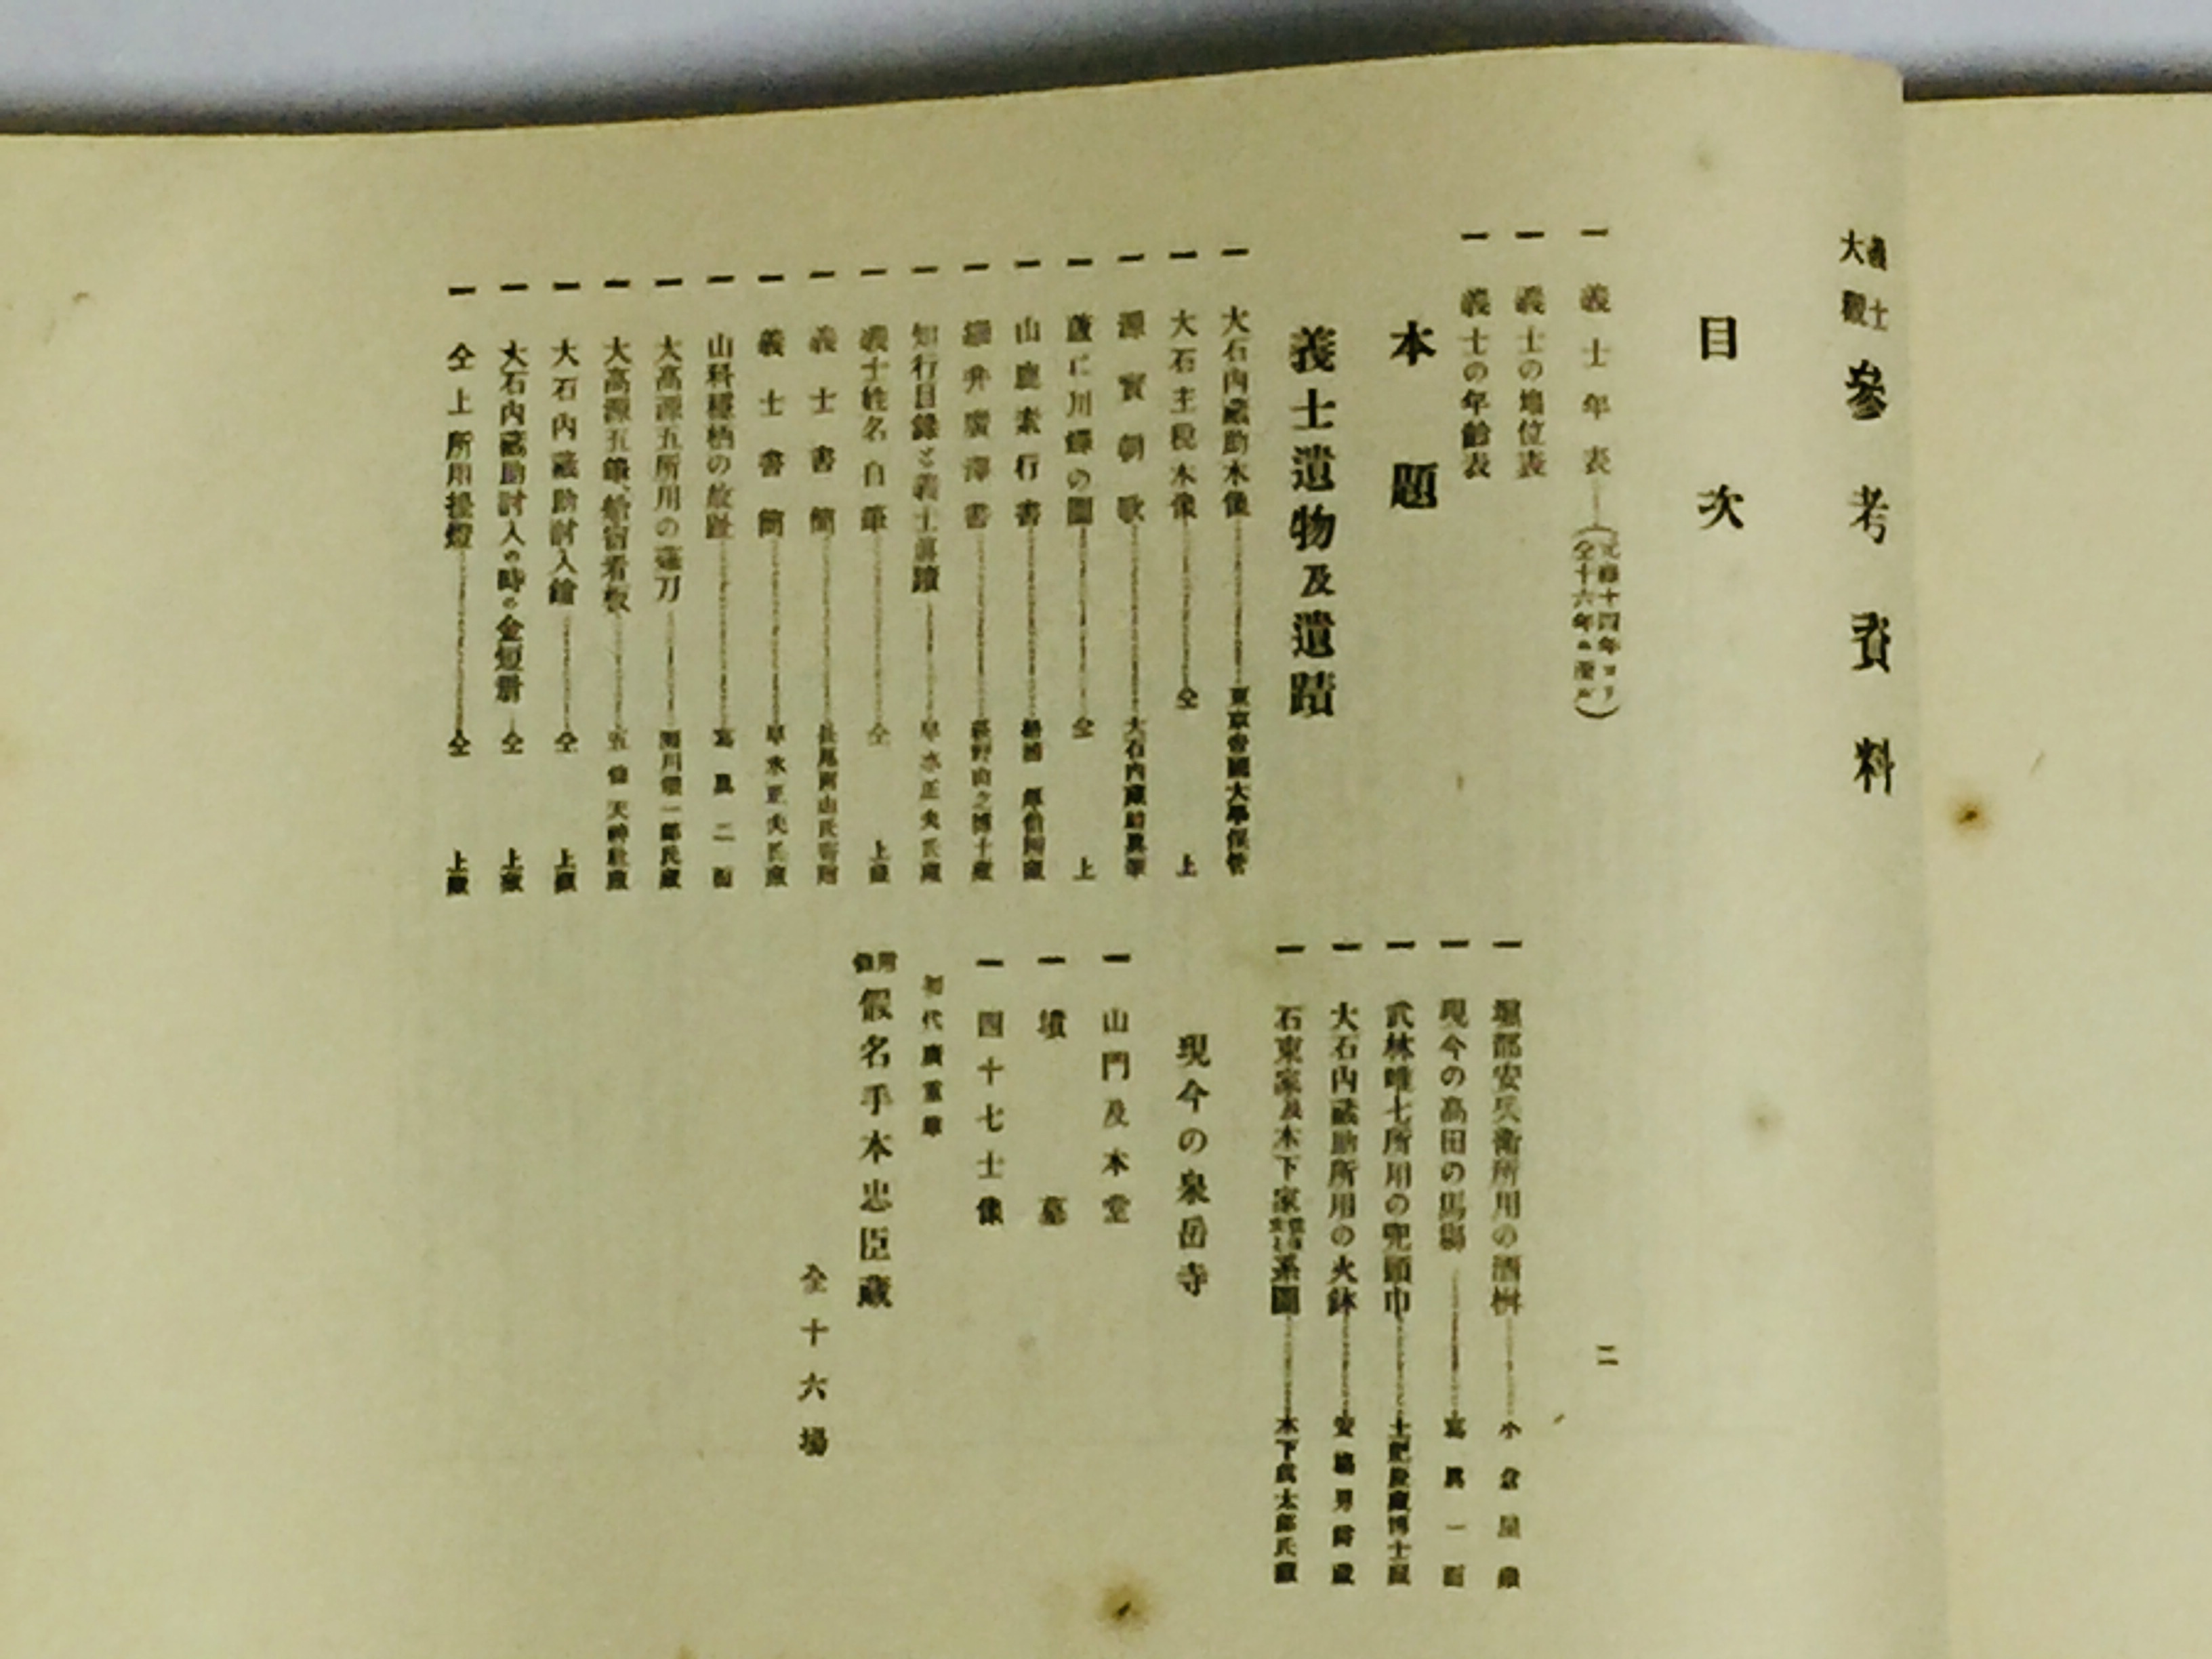 義士大觀 參考資料
目次
一 義士年表―(元祿十四年ヨリ仝十六年ニ至ル)
一 義士の地位表
一 義士の年齡表
本題
義士遺物及遺蹟
一 大石內藏助木像 東京帝國大學保管
一 大石主稅木像 仝上
一 源賓朝歌 大石內藏助眞筆
一 蘆に川蟬の圖 仝上
一 山鹿素行書 伯爵藏
一 細井廣澤書 博士藏
一 知行目錄と義士眞蹟 早水正夫氏藏
一 義士姓名自筆 仝上藏
一 義士書簡 長尾雨山氏寄贈
一 義士書簡 早水正夫氏藏
一 山科穩栖の故趾 寫眞二面
一 大高源五所用の薙刀 川一郎氏藏
一 大高源五筆、看板 五條天神社藏
一 大石內藏助討入鎗 仝上藏
一 大石內藏助討入の時の金短冊 仝上藏
一 仝上所用提燈 仝上藏
二
一 堀部安兵衛所用の酒桝 小倉屋藏
一 現今の高田の馬場 寫眞一面
一 武林唯七所用の兜頭巾 土肥慶藏博士藏
一 大石內藏助所用の火鉢 男爵藏
一 石束家及木下家系圖 木下成太郎氏藏
現今の泉岳寺
一 山門及本堂
一 墳墓
一 四十七士像
初代廣重筆
附錄 假名手本忠臣藏
全十六場